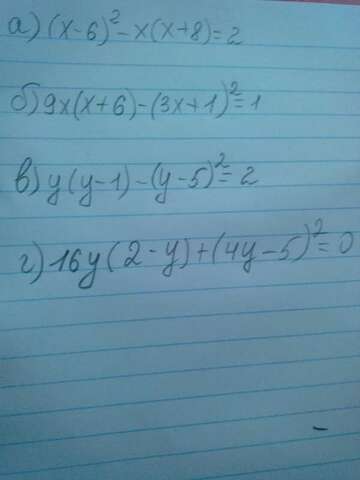 а) (x-6)² - x(x+8) = 2
б) 9x(x+6) - (3x+1)² = 1
в) y(y-1) - (y-5)² = 2
г) 16y(2-y) + (4y-5)² = 0